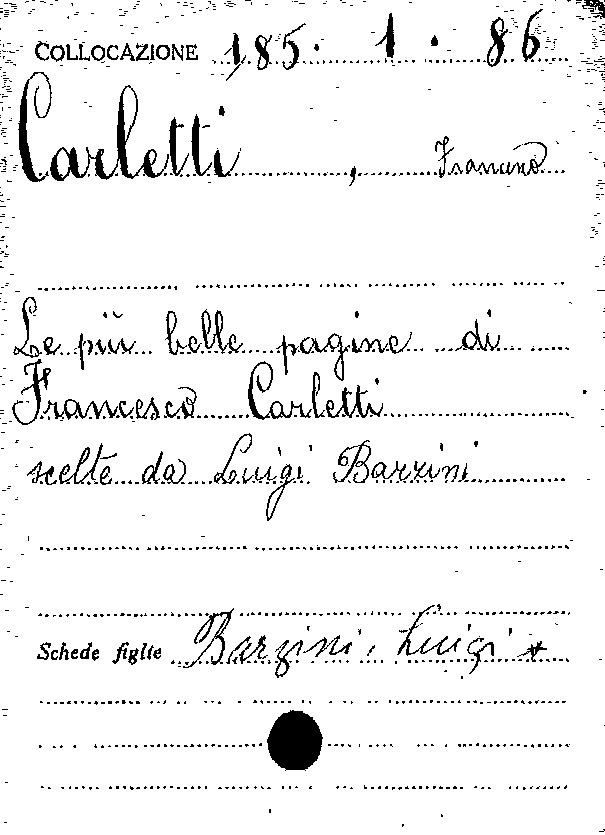 COLLOCAZIONE 185. 1. 86
Carletti, Francesco
Le più belle pagine di
Francesco Carletti
scelte da Luigi Barzini
Schede figlie Barzini, Luigi *